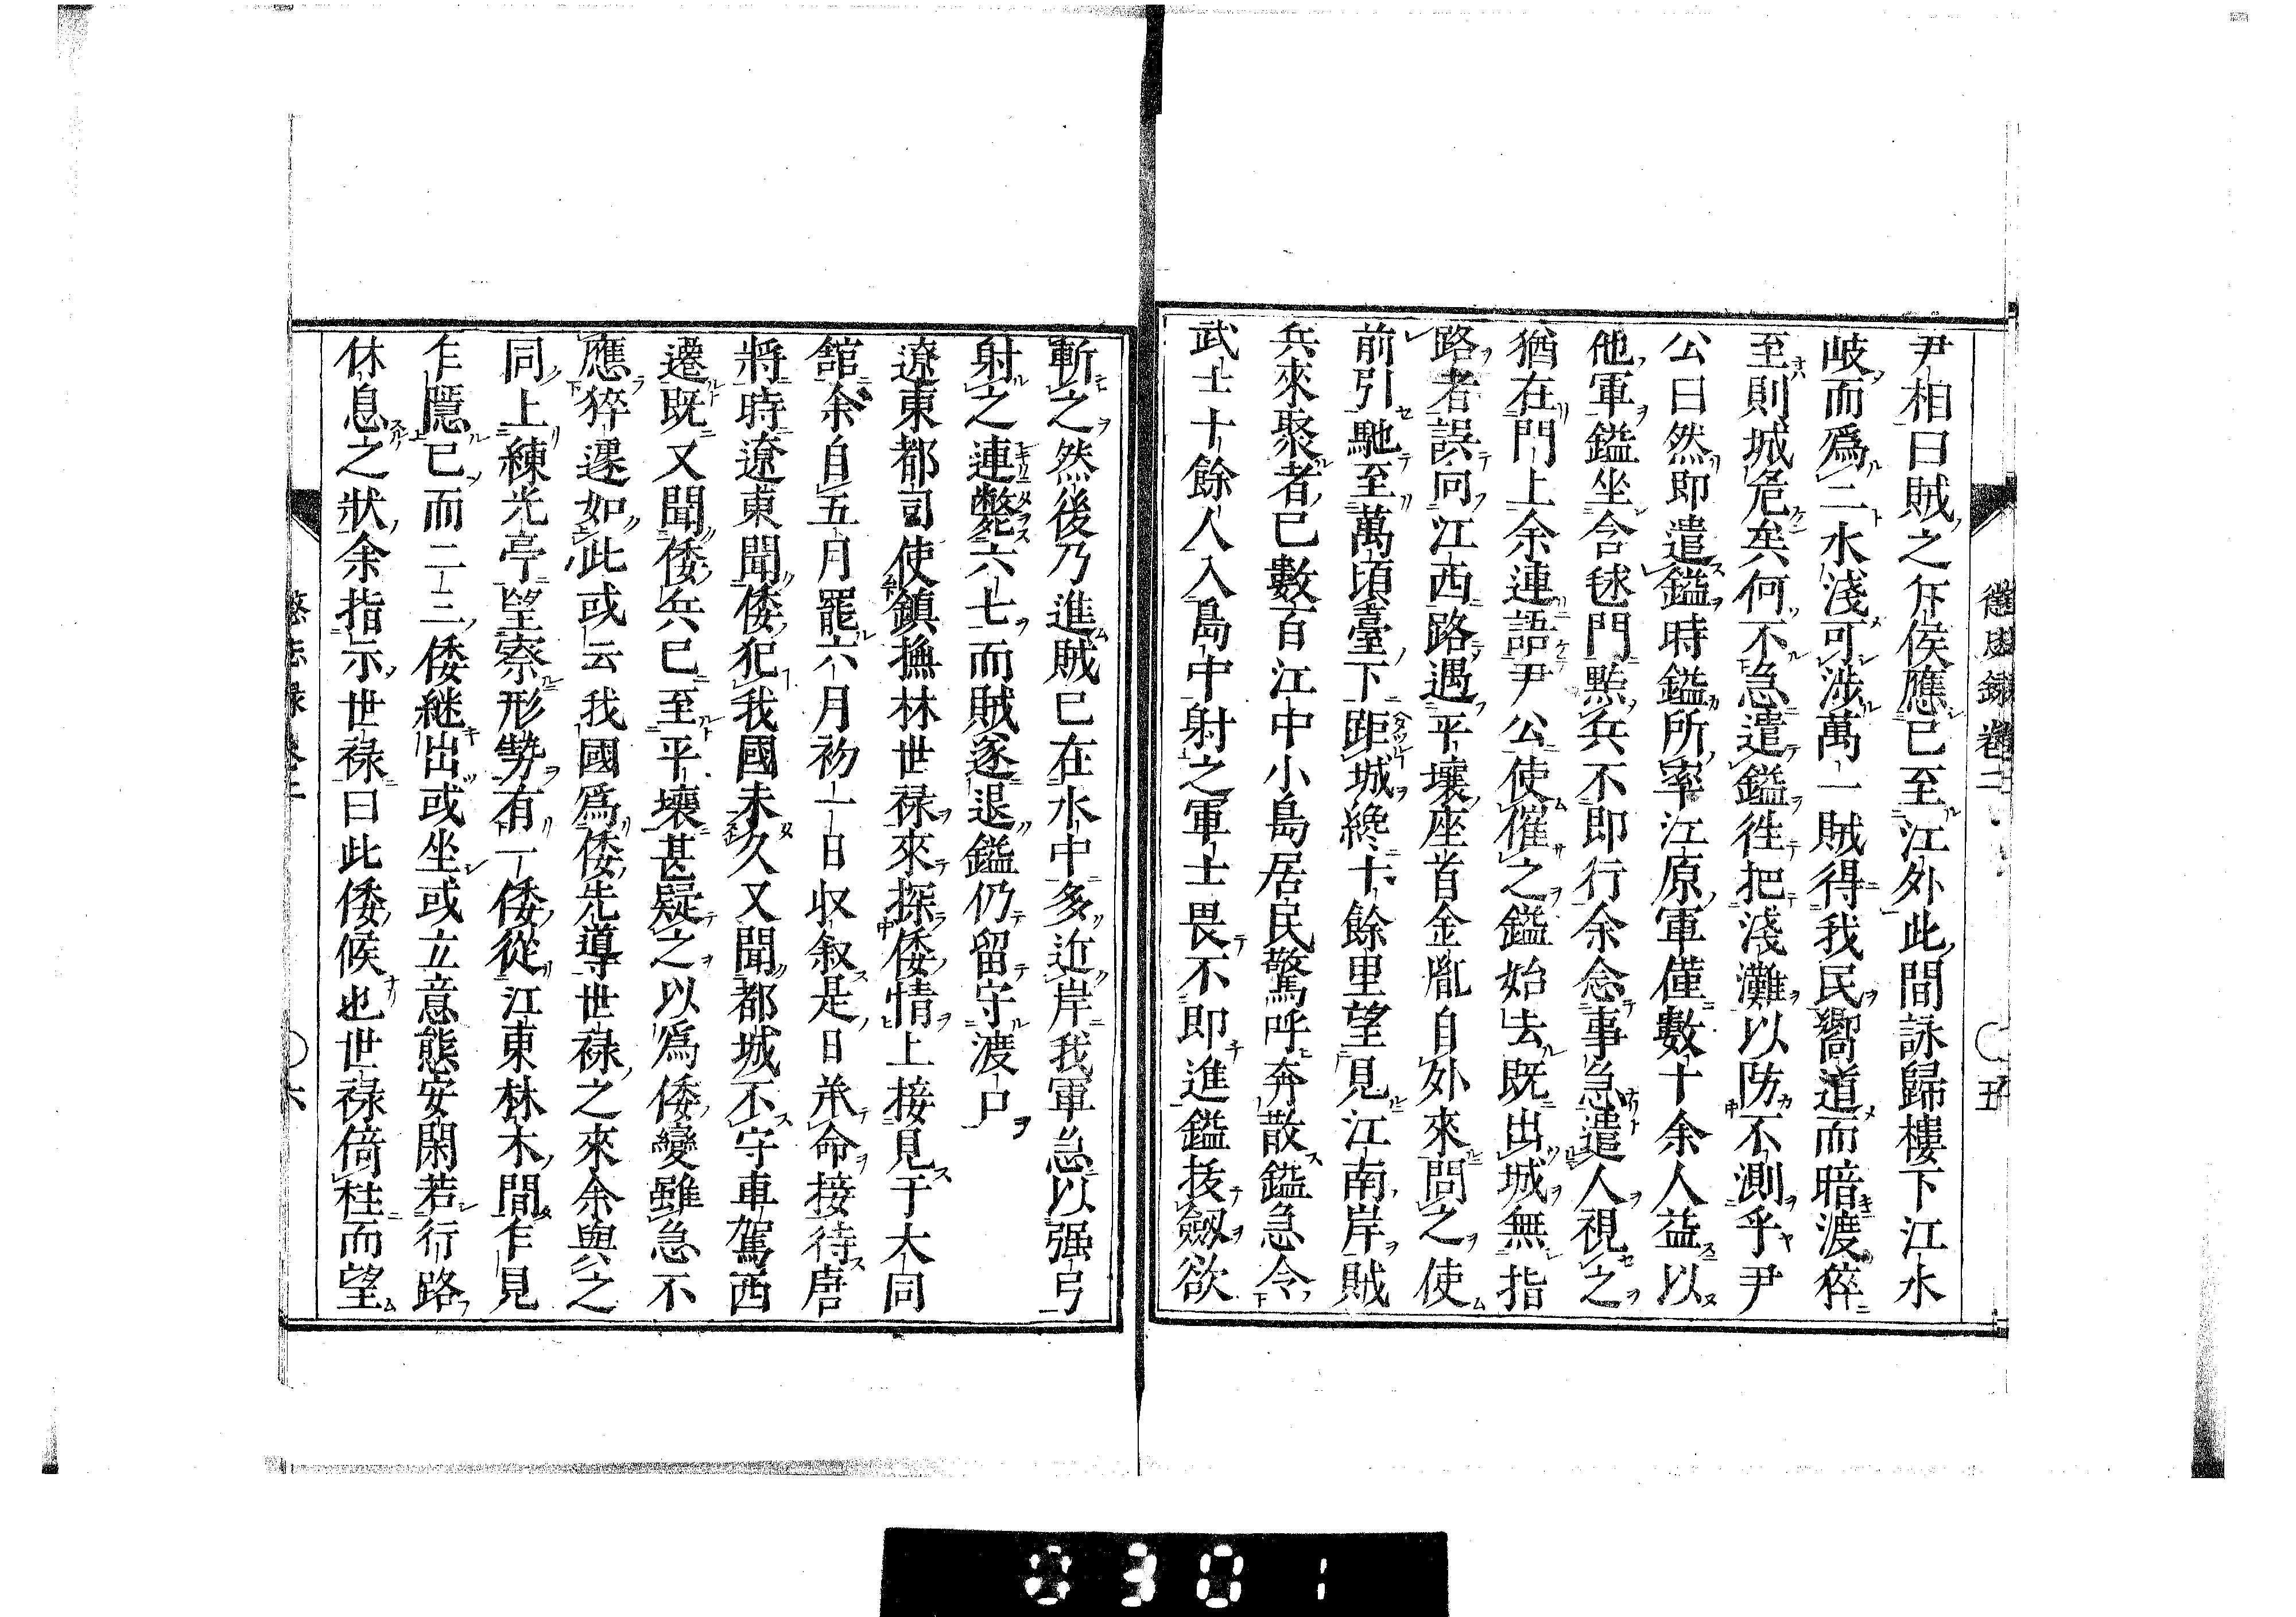 懲毖録卷二 〇五
尹相曰賊之斥候應已至江外此間詠歸樓下江水
岐而爲二水淺可渉萬一賊得我民嚮道而暗渡猝
至則城危矣何不急遣鎰徃把淺灘以防不測乎尹
公曰然即遣鎰時鎰所率江原軍僅數十余人益以
他軍鎰坐含毬門㸃兵不即行余念事急遣人視之
猶在門上余連語尹公使催之鎰始去既出城無指
路者誤向江西路遇平壤座首金胤自外來問之使
前引馳至萬頃臺下距城纔十餘里望見江南岸賊
兵來聚者已數百江中小島居民驚呼奔散鎰急令
武士十餘人入島中射之軍士畏不即進鎰拔劔欲
斬之然後乃進賊已在水中多近岸我軍急以强弓
射之連斃六七而賊遂退鎰仍留守渡口
遼東都司使鎮撫林世禄來探倭情上接見于大同
館余自五月罷六月初一日収叙是日承命接待唐
將時遼東聞倭犯我國未久又聞都城不守車駕西
遷既又聞倭兵已至平壤甚疑之以爲倭變雖急不
應猝遽如此或云我國爲倭先導世禄之來余與之
同上練光亭望察形勢有一倭從江東林木間乍見
乍隱已而二三倭継出或坐或立意態安閑若行路
休息之狀余指示世禄曰此倭候也世禄倚柱而望
懲毖録卷二 〇六
0301